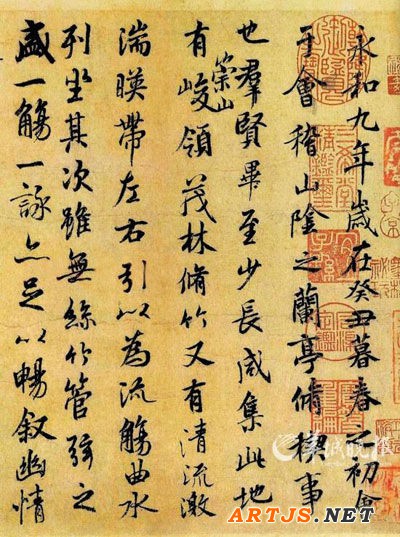 永和九年歲在癸丑暮春之初會
于會稽山陰之蘭亭脩稧事
也羣賢畢至少長咸集此地
有崇山峻領茂林脩竹又有清流激
湍暎帶左右引以為流觴曲水
列坐其次雖無絲竹管弦之
盛一觴一詠亦足以暢敘幽情
羊城晚报
ARTJS.NET